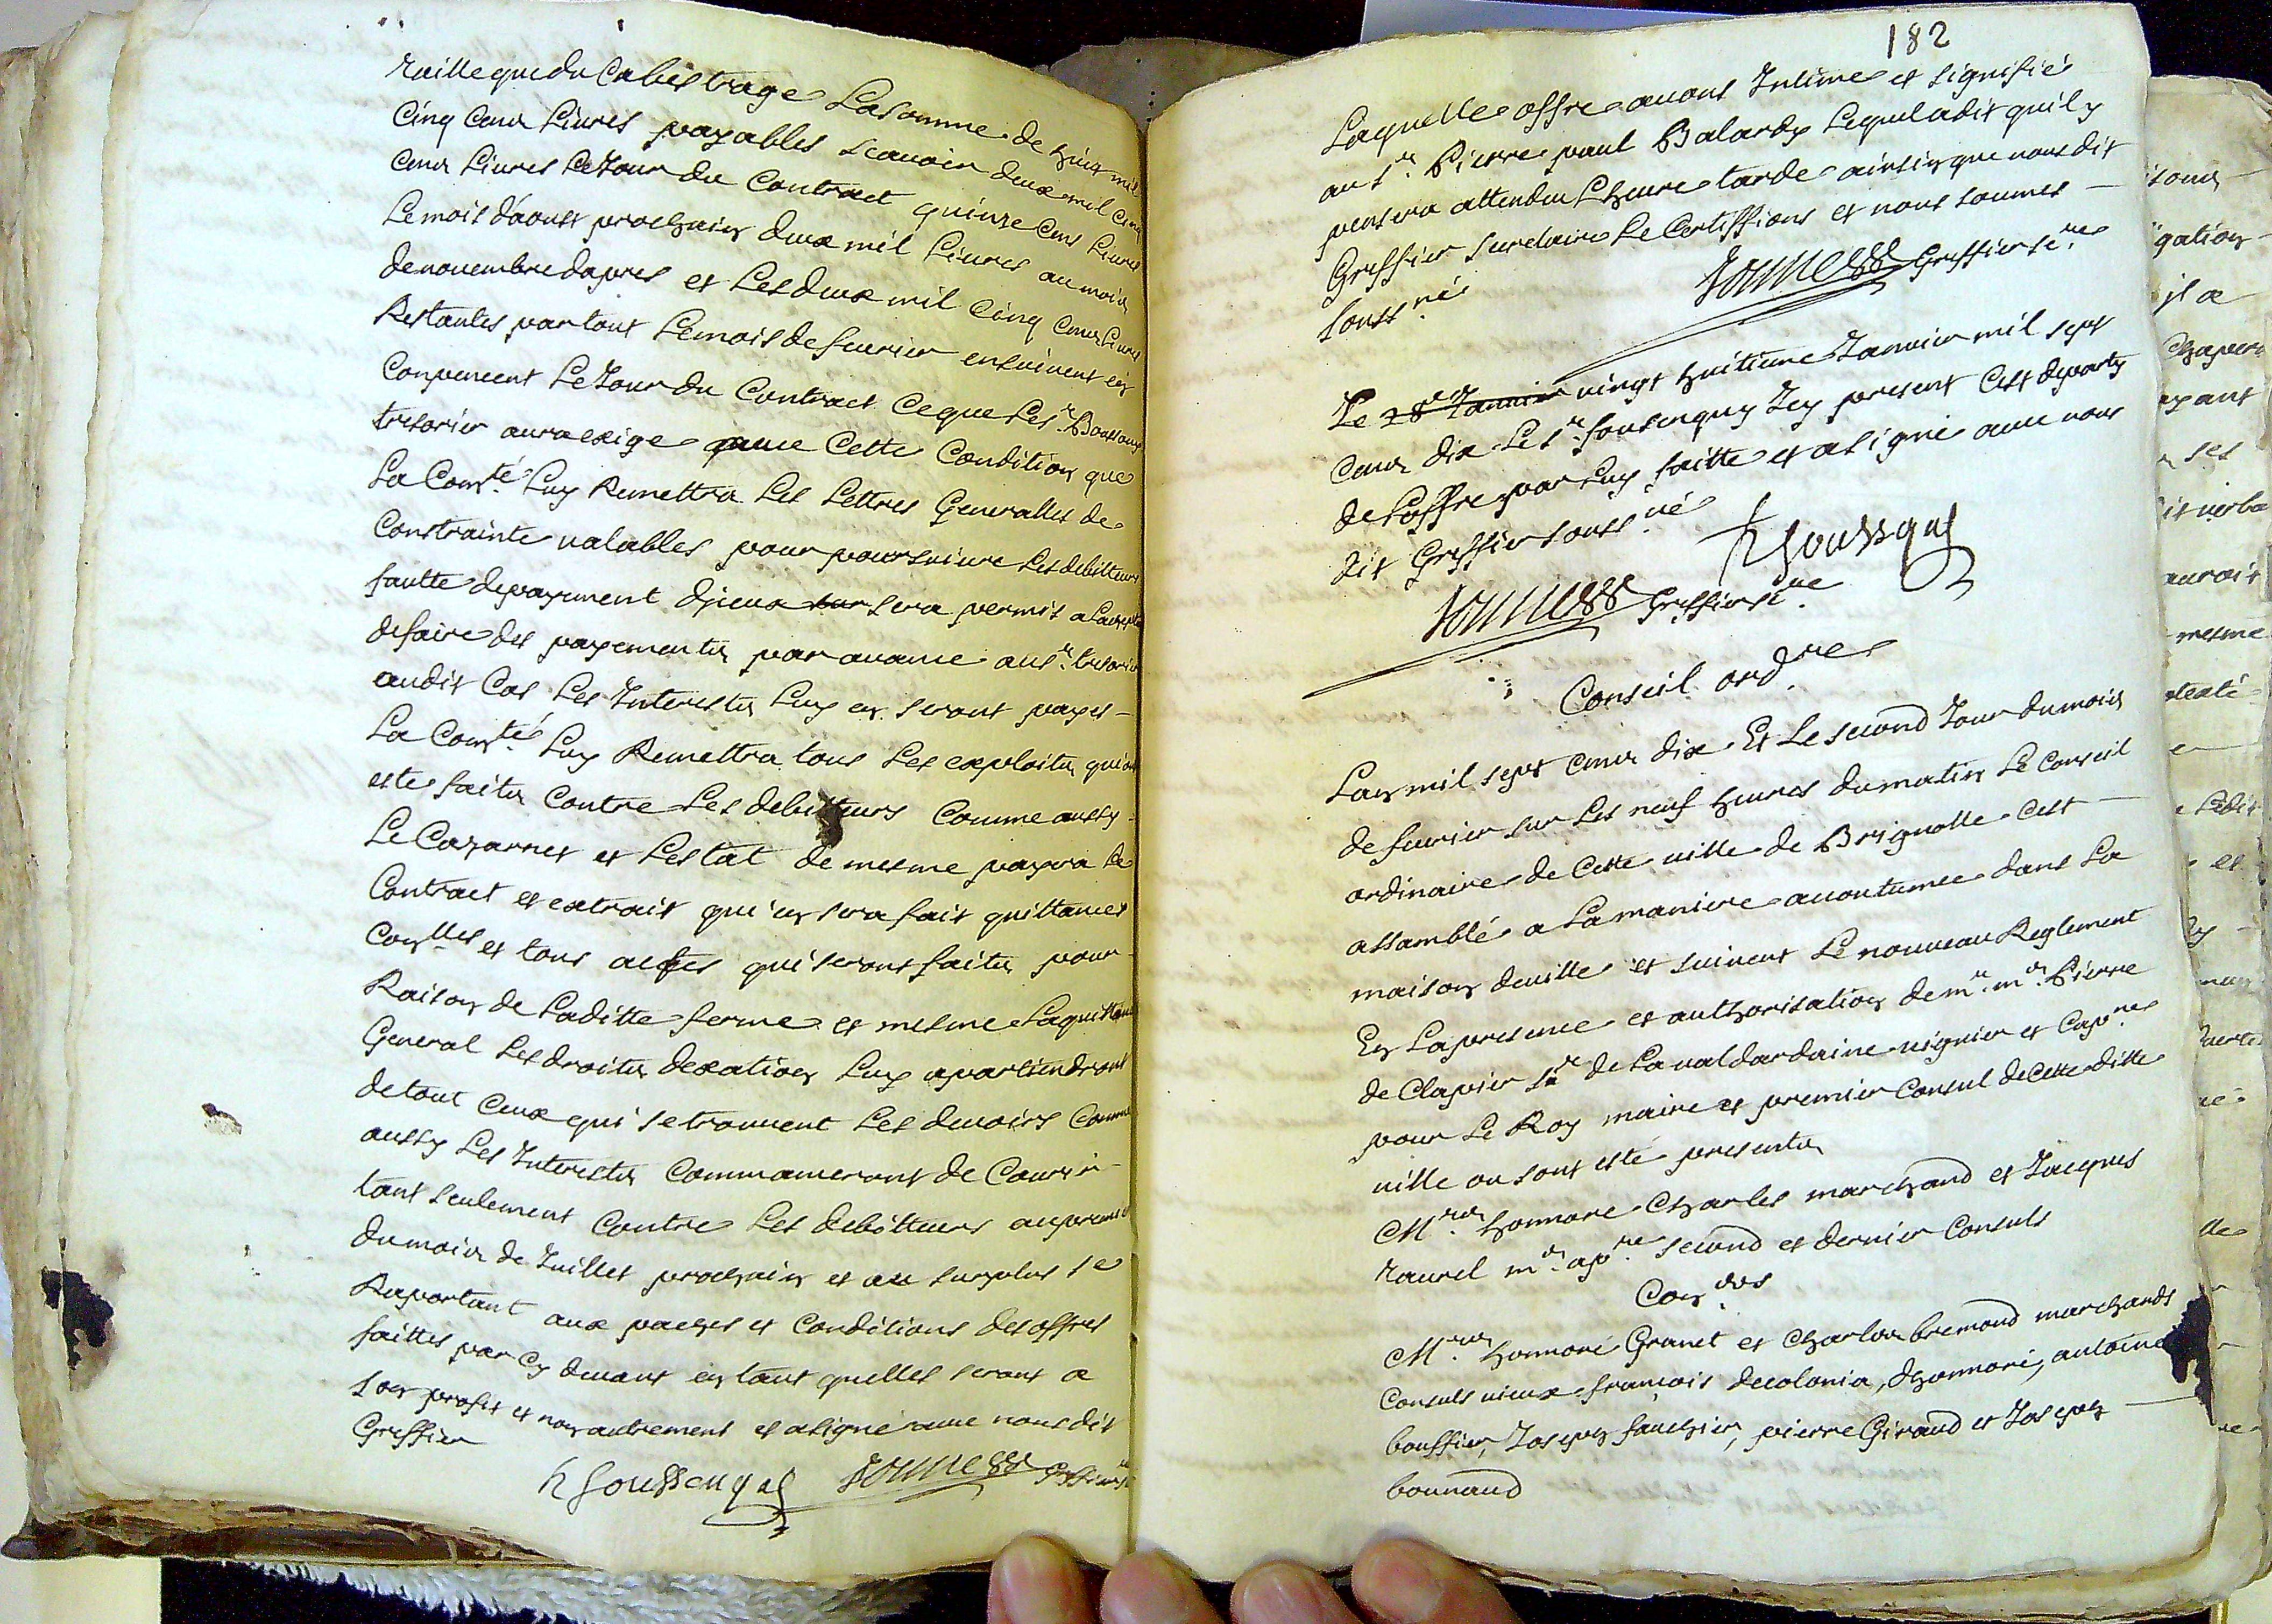 raille que du Cabestrage La somme de huit mil
Cinq Cens Livres payables scavoir deux mil Cinq
Cens Livres Le Jour du Contract quinze Cens Livres
Le mois d'aoust prochain deux mil Livres au mois
de novembre dapres et Les deux mil Cinq Cens Livres
Restantes par tout Le mois de fevrier ensuivent en
Conpencent Le Jour du Contract Ce que Le sr. Boussong
tresorier aura exige avec Cette Condition que
La Comté. Luy Remettra Les Lettres Generalles de
Constrainte valables pour poursuivre Les debitteurs
fautte de payement diceux sera permis a
de faire des payements par avance au sr. tresorier
audit Cas Les Interests Luy en seront payes
La Comté. Luy Remettra tous Les exploits qui ont
este faits Contre Les debitteurs Comme aussy
Le Cazarnet et Lestat de mesme payera Le
Contract et extrait qui en sera fait quittances
Conlles et tous actes qui seront faits pour
Raison de Laditte ferme et mesme La quittance
General Les droits dexation Luy apartiendront
de tout Ceux qui se trouvent Les devoirs Comme
aussy Les Interests Commanceront de Courir
tant seulement Contre Les debitteurs au premier
du mois de Juillet prochain et au surplus se
Raportant aux paches et Conditions des offres
faittes par Cy devant en tant quelles seront a
son profit et non autrement et a signé avec nous dit
Greffier
h foussenqui Greffier
182
Laquelle offre avons Intimé et signifié
au sr. Pierre paul Balardy Lequel a dit quil y
pensera attendu Lheure tarde ainsin que nous dit
Greffier Secretaire Le Certiffions et nous sommes
souss.né
Greffier se.re
Le 28e Janvier vingt huitieme Janvier mil sept
Cens dix Le sr. fousenquy Icy present Cest departy
de Loffre par Luy faitte et a signé avec nous
dit Greffier souss.né
h foussqui
Greffier se.re
Conseil ord.re
Lan mil sept Cens dix Et Le second Jour du mois
de fevrier sur Les neuf heures du matin Le Conseil
ordinaire de Cette ville de Brignolle Cest
assamblé a La maniere accoutumee dans La
maison de ville et suivent Le nouveau Reglement
En La presence et authorisation de mr. mr. Pierre
de Clapier sr de La val dardaine viguier et Cap.ne
pour Le Roy maire et premier Consul de Cette ditte
ville ou sont este presents
Mrs. honnore Charles marchand et Jacques
raurel mr. ap.re second et dernier Consuls
Con.ers
Mrs. honnoré Granet et Charles bremond marchands
Consuls vieux françois decolonia, dhonnoré, antoine
bouffier, Joseph fauchier, pierre Giraud et Joseph
bonnaud